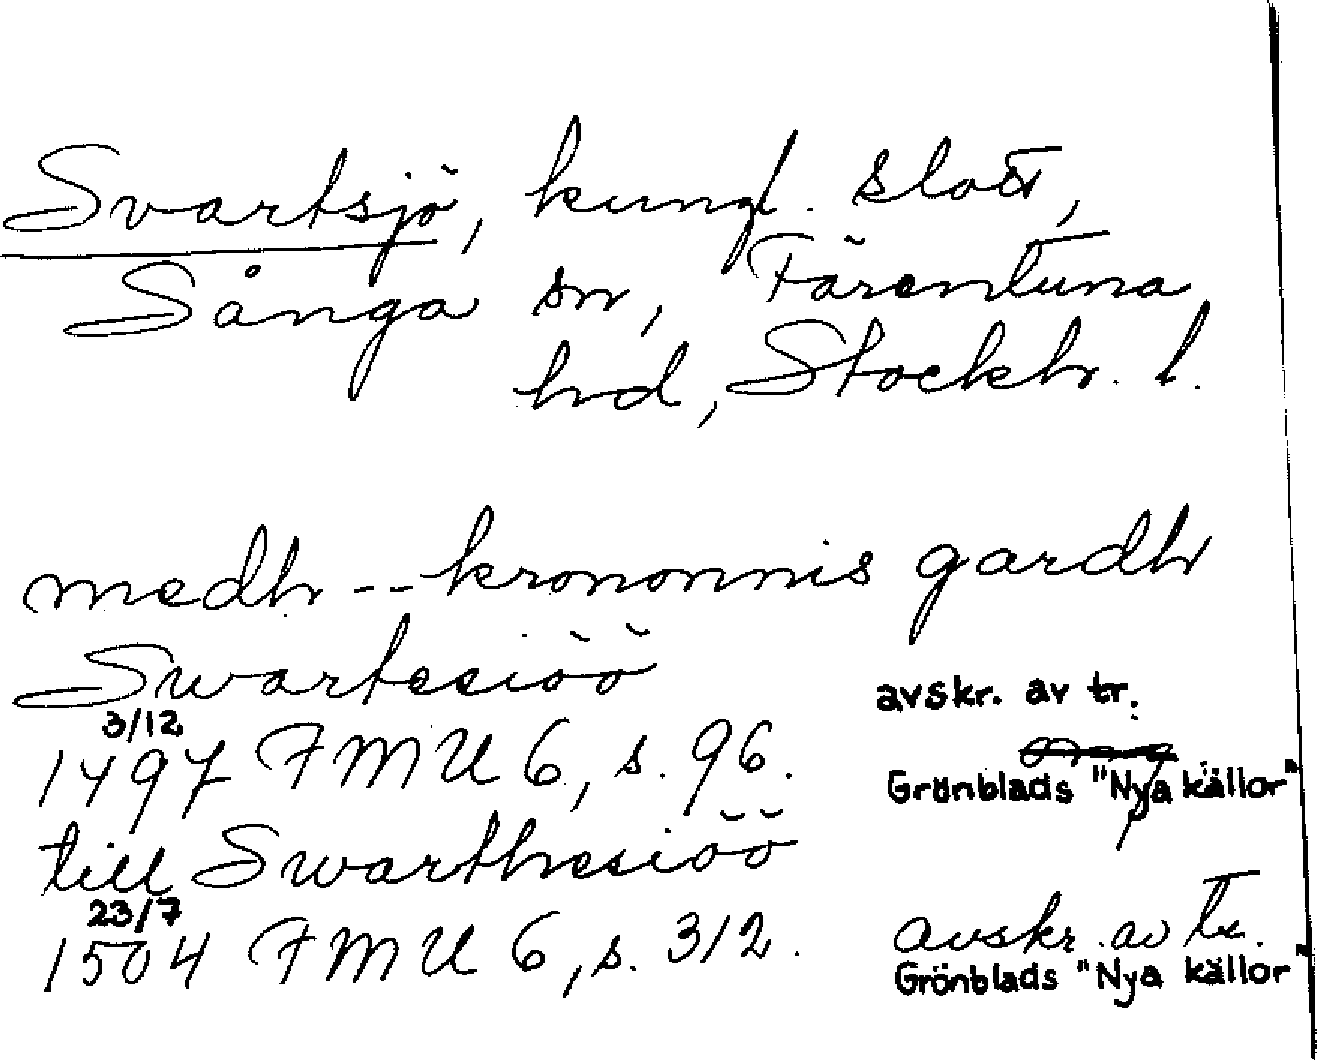 Svartsjö, kungl. slott,
Sånga sn, Färentuna
hd, Stockh. l.
medh -- krononnis gardh
Swartesiöö
avskr. av tr.
3/12
1497 FMU 6, s. 96.
Grönblads "Nya källor"
till Swarthesiöö
23/7
1504 FMU 6, s. 312.
avskr. av tr.
Grönblads "Nya källor"